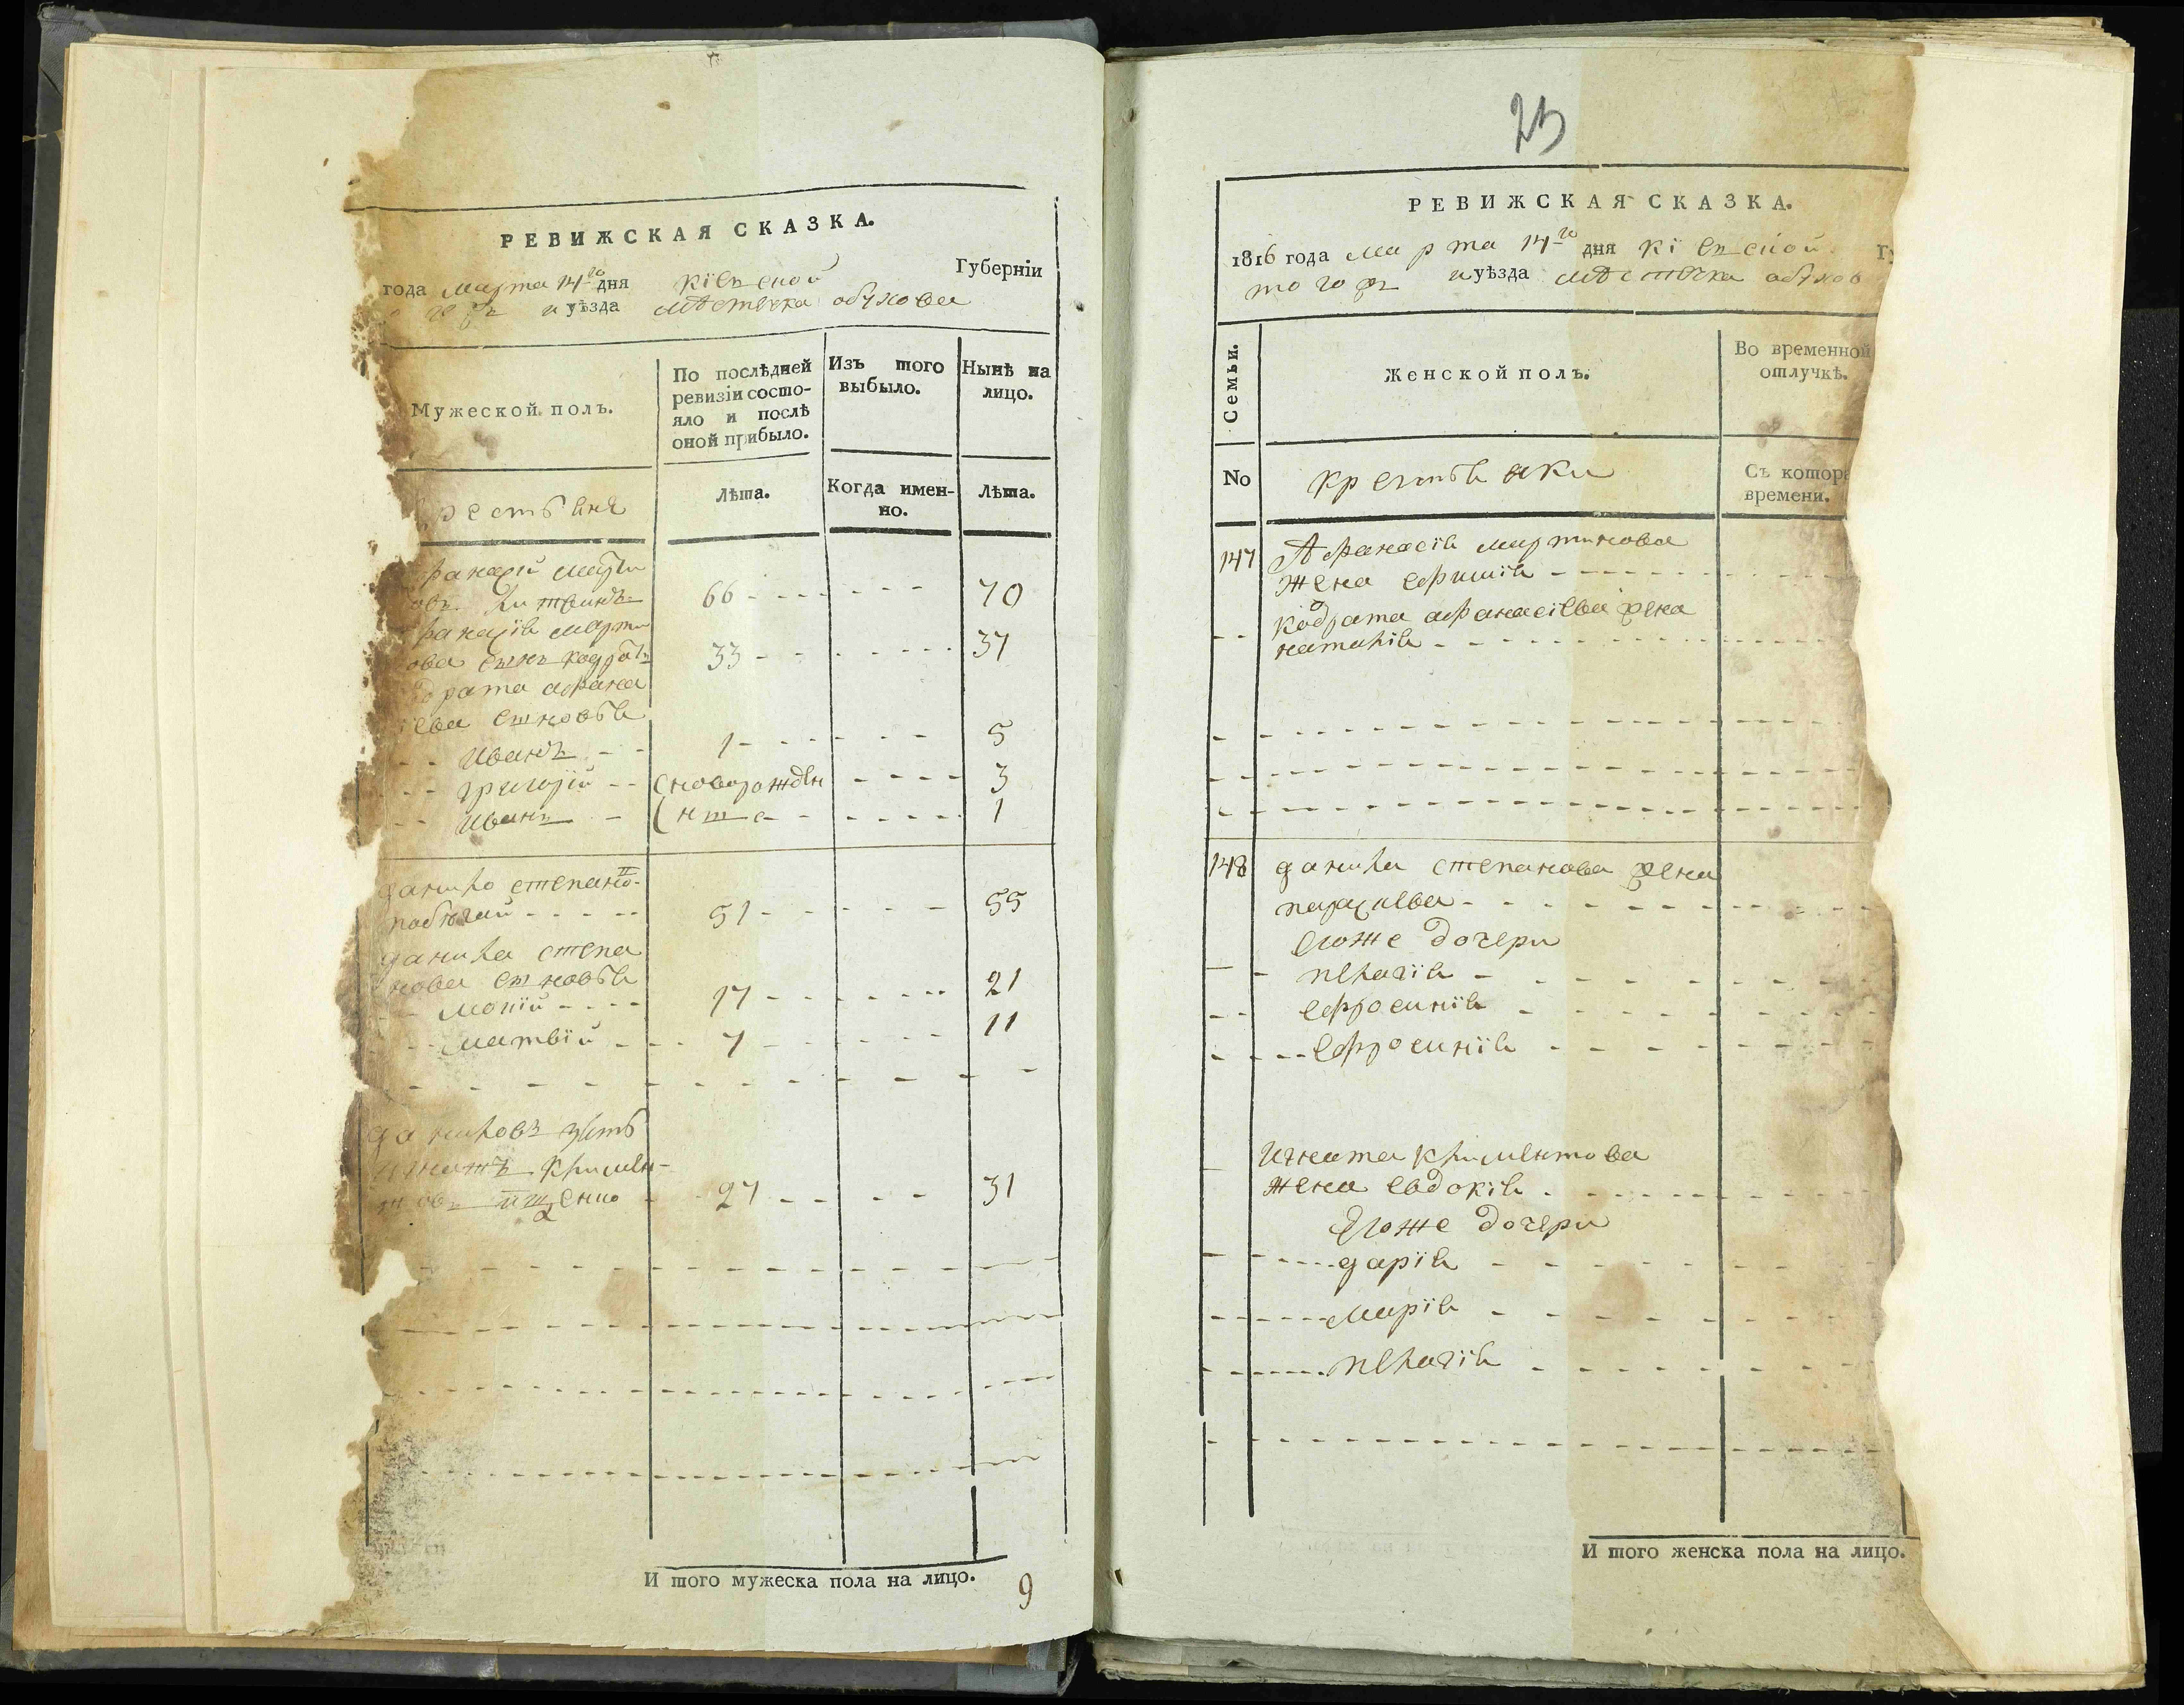 РЕВИЖСКАЯ СКАЗКА.
года марта 14го дня кіевской Губерніи
уѣзда мѣстечка обухова
Мужеской полъ.
По послѣдней
ревизіи состо-
яло и послѣ
оной прибыло.
Изъ того
выбыло.
Нынѣ на
лицо.
рестьяня
Лѣта.
Когда имен-
но.
Лѣта.
фанасій марти
овъ 66 70
фанасія марти
ова сынъ кодратъ 33 37
драта афана
сіева сыновья
Иванъ 1 5
григорій (новорожден 3
Иванъ (ные 1
данило степано-
51 55
данила степа
нова сыновья
мокій 17 21
матвій 7 11
даниловъ зять
игнатъ климен-
товъ 27 31
И того мужеска пола на лицо. 9
25
РЕВИЖСКАЯ СКАЗКА.
1816 года марта 14го дня кіевской
того уѣзда мѣстечка обухов
Семьи.
Женской полъ.
Во временной
отлучкѣ.
No
крестьянки
Съ котора
времени.
147 Афанасія мартинова
жена ефимія
кодрата афанасіева жена
наталія
148 данила степанова жена
параскева
егоже дочери
пелагія
ефросинія
ефросинія
игната климентова
жена евдокія
егоже дочери
дарія
марія
пелагія
И того женска пола на лицо.